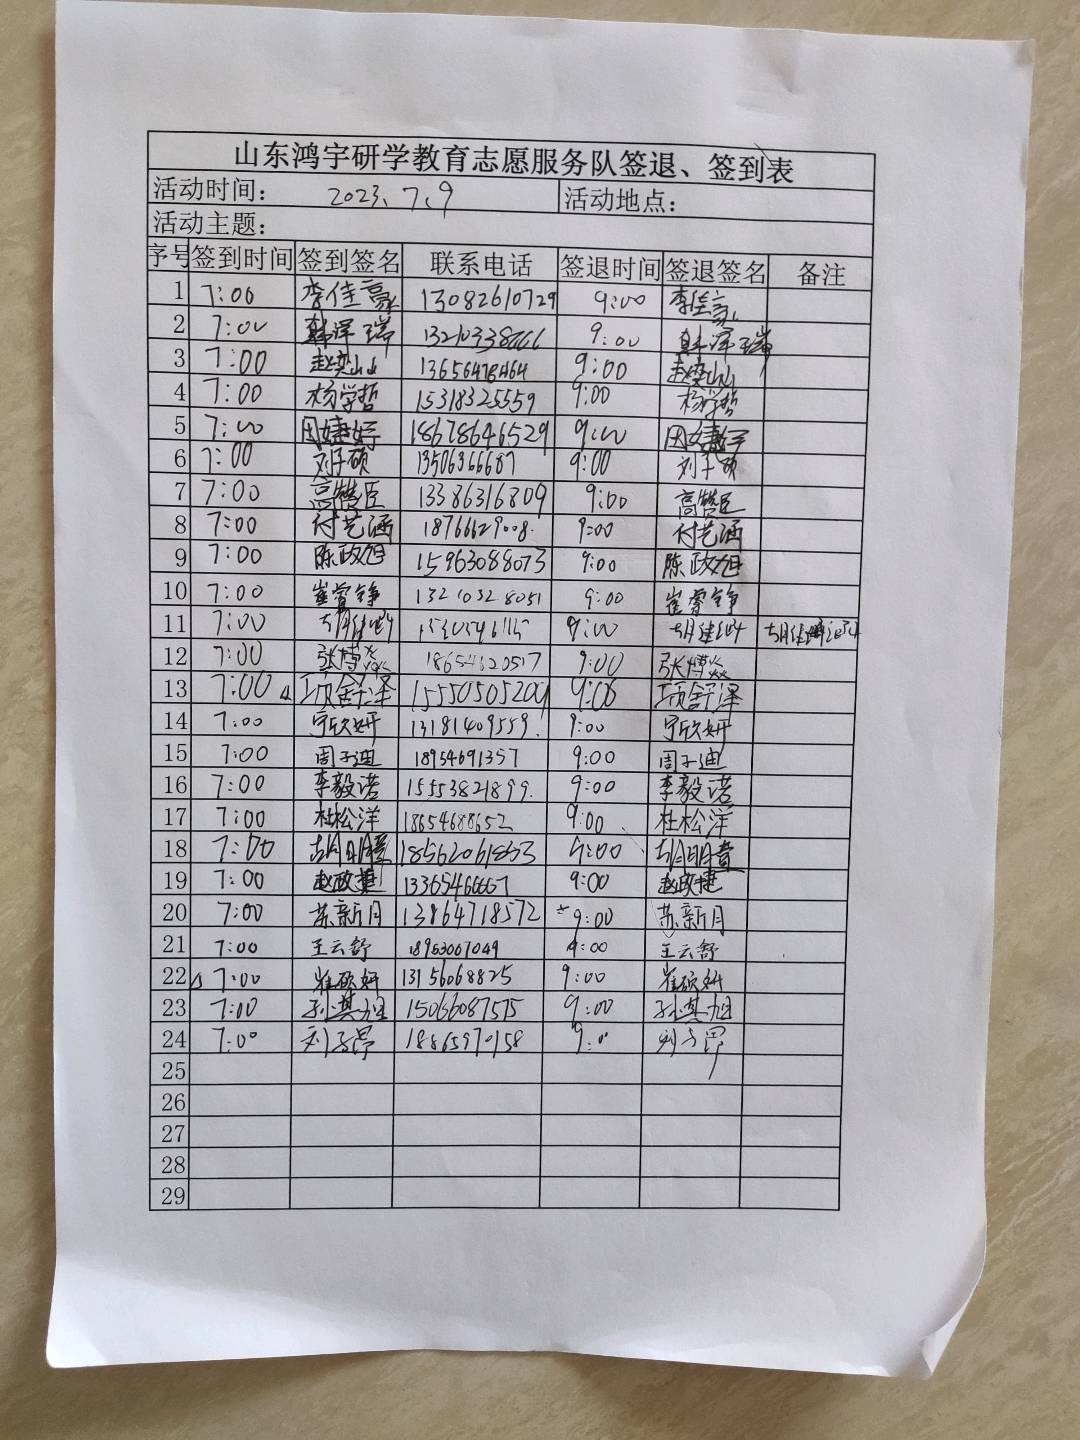 山东鸿宇研学教育志愿服务队签退、签到表
活动时间： 2023、7、9 活动地点：
活动主题：
序号 签到时间 签到签名 联系电话 签退时间 签退签名 备注
1 7:00 李佳豪 13082610729 9:00 李佳豪
2 7:00 韩泽瑞 9:00 韩泽瑞
3 7:00 9:00
4 7:00 杨学哲 15318325559 9:00 杨学哲
5 7:00 田婕妤 18678646529 9:00 田婕妤
6 7:00 刘子硕 13506366687 9:00 刘子硕
7 7:00 高赞臣 13386316809 9:00 高赞臣
8 7:00 付艺涵 18766629008. 9:00 付艺涵
9 7:00 陈政旭 15963088073 9:00 陈政旭
10 7:00 崔睿铮 13210328051 9:00 崔睿铮
11 7:00 9:00
12 7:00 张博焱 18654620517 9:00 张博焱
13 7:00 项舒泽 15550505209 9:00 项舒泽
14 7:00 宁欣妍 13181409559. 9:00 宁欣妍
15 7:00 周子迪 18954691357 9:00 周子迪
16 7:00 李毅诺 15553821899. 9:00 李毅诺
17 7:00 杜松洋 18654688652 9:00 杜松洋
18 7:00 18562061853 9:00
19 7:00 赵政捷 13365466667 9:00 赵政捷
20 7:00 苏新月 13864718572 9:00 苏新月
21 7:00 王云舒 18953007049 9:00 王云舒
22 7:00 崔硕妍 13156068825 9:00 崔硕妍
23 7:00 孙淇旭 15066087575 9:00 孙淇旭
24 7:00 刘子昂 18865970158 9:00 刘子昂
25
26
27
28
29